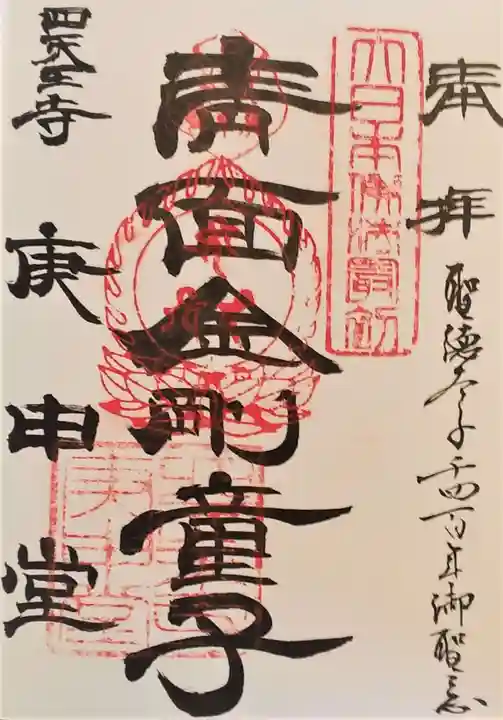 奉拝
聖徳太子千四百年御聖忌
大日本佛法最初
青面金剛童子
四天王寺
庚申堂